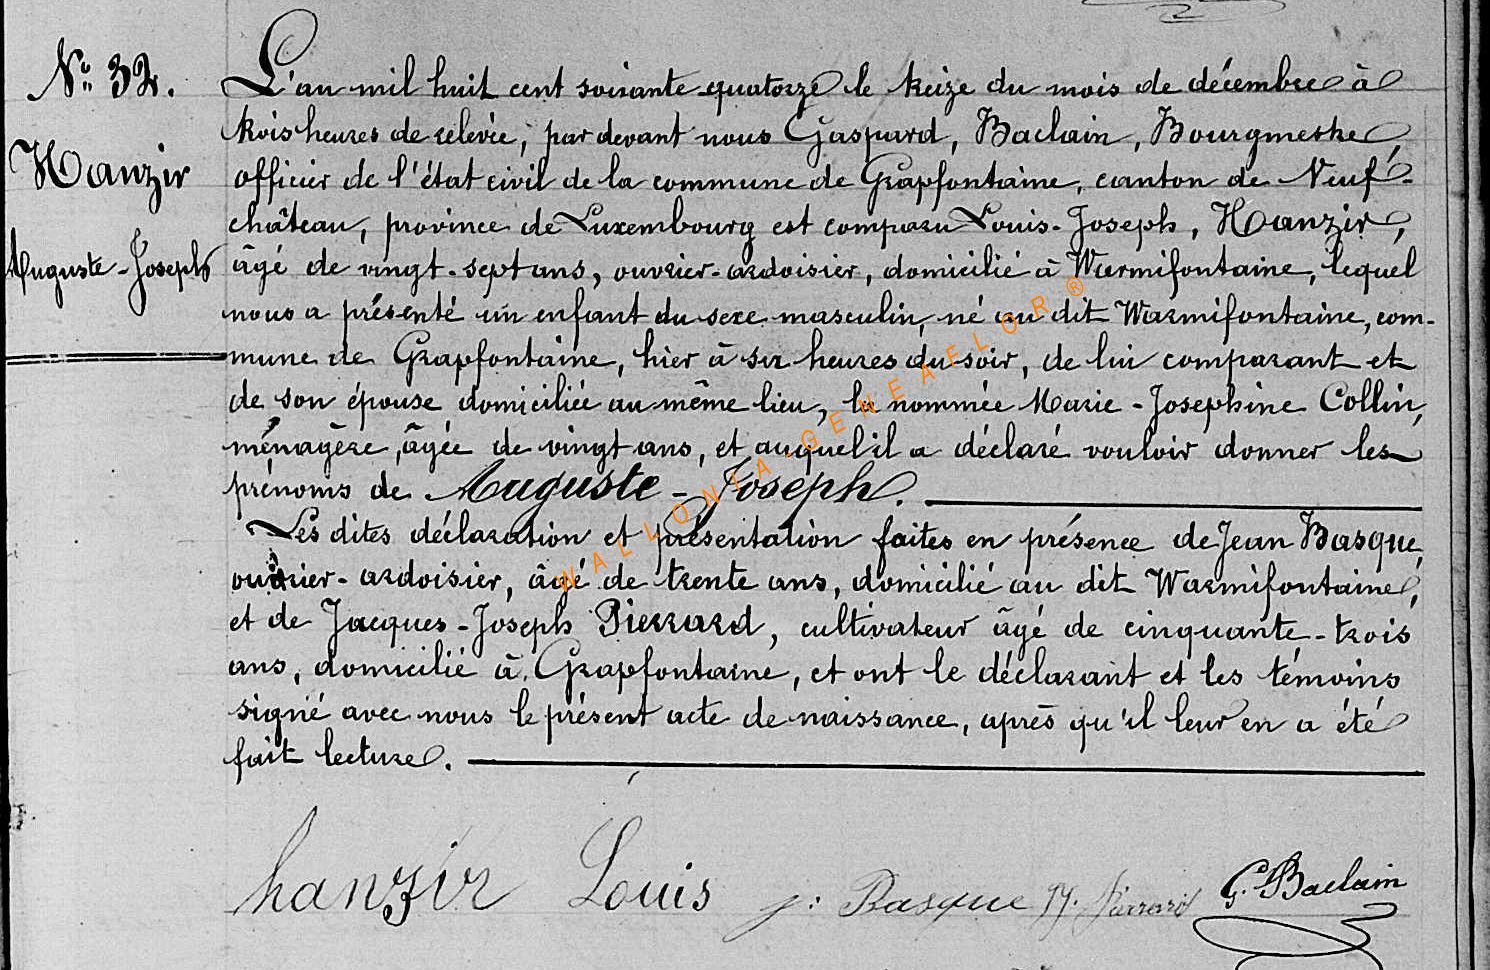 N° 32.
Hanzir
Auguste-Joseph
L'an mil huit cent soixante-quatorze le treize du mois de décembre à
trois heures de relevée, par devant nous Gaspard, Baclain, Bourgmestre,
officier de l'état civil de la commune de Grapfontaine, canton de Neuf-
château, province de Luxembourg est comparu Louis-Joseph, Hanzir,
âgé de vingt-sept ans, ouvrier-ardoisier, domicilié à Warmifontaine, lequel
nous a présenté un enfant du sexe masculin, né au dit Warmifontaine, com-
mune de Grapfontaine, hier à six heures du soir, de lui comparant et
de son épouse domiciliée au même lieu, la nommée Marie-Josephine Collin,
ménagère, âgée de vingt ans, et auquel il a déclaré vouloir donner les
prénoms de Auguste-Joseph.
Les dites déclaration et présentation faites en présence de Jean Basque,
ouvrier-ardoisier, âgé de trente ans, domicilié au dit Warmifontaine,
et de Jacques-Joseph Pierrard, cultivateur âgé de cinquante-trois
ans, domicilié à Grapfontaine, et ont le déclarant et les témoins
signé avec nous le présent acte de naissance, après qu'il leur en a été
fait lecture.
hanzir Louis j: Basque JJ. Pierrard G. Baclain
WALLONIA-GENEAELOR®